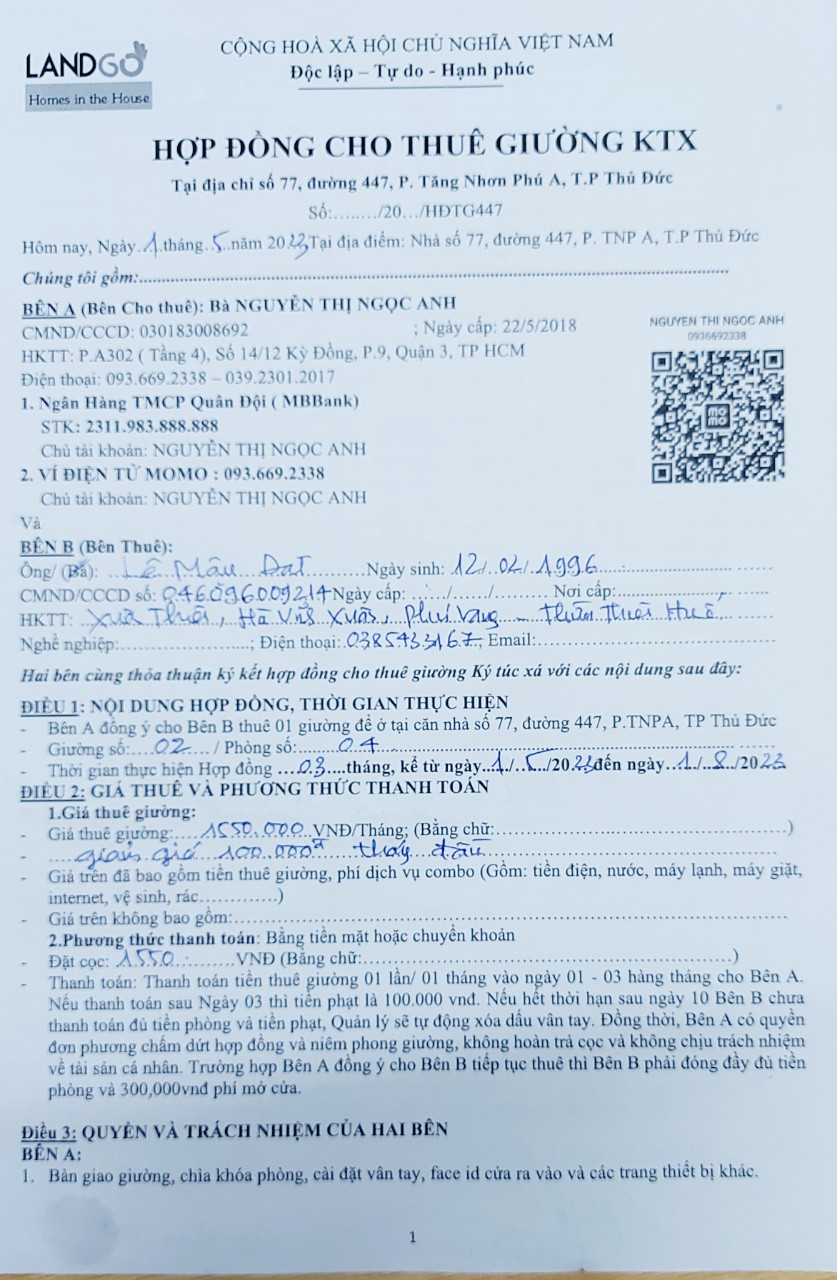 LANDGO
Homes in the House
CỘNG HOÀ XÃ HỘI CHỦ NGHĨA VIỆT NAM
Độc lập – Tự do - Hạnh phúc
HỢP ĐỒNG CHO THUÊ GIƯỜNG KTX
Tại địa chỉ số 77, đường 447, P. Tăng Nhơn Phú A, T.P Thủ Đức
Số:......../20…/HĐTG447
Hôm nay, Ngày.1.tháng..5..năm 2023 Tại địa điểm: Nhà số 77, đường 447, P. TNP A, T.P Thủ Đức
Chúng tôi gồm:...............
BÊN A (Bên Cho thuê): Bà NGUYỄN THỊ NGỌC ANH
CMND/CCCD: 030183008692 ; Ngày cấp: 22/5/2018
HKTT: P.A302 ( Tầng 4), Số 14/12 Kỳ Đồng, P.9, Quận 3, TP HCM
Điện thoại: 093.669.2338 – 039.2301.2017
NGUYEN THI NGOC ANH
0936692338
momo
1. Ngân Hàng TMCP Quân Đội ( MBBank)
STK: 2311.983.888.888
Chủ tài khoản: NGUYỄN THỊ NGỌC ANH
2. VÍ ĐIỆN TỬ MOMO : 093.669.2338
Chủ tài khoản: NGUYỄN THỊ NGỌC ANH
Và
BÊN B (Bên Thuê):
Ông/ (Bà): Lê Mậu Đạt Ngày sinh: 12/02/1996
CMND/CCCD số: 046096009214 Ngày cấp: ....../....../......... Nơi cấp:...............
HKTT: Xuân Thiên, Hà Vĩnh Xuân, Phú Vang – Thừa Thiên Huế
Nghề nghiệp:...............; Điện thoại: 0385433167, Email:...............
Hai bên cùng thỏa thuận ký kết hợp đồng cho thuê giường Ký túc xá với các nội dung sau đây:
ĐIỀU 1: NỘI DUNG HỢP ĐỒNG, THỜI GIAN THỰC HIỆN
- Bên A đồng ý cho Bên B thuê 01 giường để ở tại căn nhà số 77, đường 447, P.TNPA, TP Thủ Đức
- Giường số:....02..... / Phòng số:.........04.........
- Thời gian thực hiện Hợp đồng ....03....tháng, kể từ ngày..1./..5../2023 đến ngày..1./..8../2023
ĐIỀU 2: GIÁ THUÊ VÀ PHƯƠNG THỨC THANH TOÁN
1.Giá thuê giường:
- Giá thuê giường:....1550.000..VNĐ/Tháng; (Bằng chữ:...............)
- giảm giá 100.000đ tháng đầu
- Giá trên đã bao gồm tiền thuê giường, phí dịch vụ combo (Gồm: tiền điện, nước, máy lạnh, máy giặt,
internet, vệ sinh, rác.............)
- Giá trên không bao gồm:...............
2.Phương thức thanh toán: Bằng tiền mặt hoặc chuyển khoản
- Đặt cọc: 1.550.........VNĐ (Bằng chữ:...............)
- Thanh toán: Thanh toán tiền thuê giường 01 lần/ 01 tháng vào ngày 01 - 03 hàng tháng cho Bên A.
Nếu thanh toán sau Ngày 03 thì tiền phạt là 100.000 vnđ. Nếu hết thời hạn sau ngày 10 Bên B chưa
thanh toán đủ tiền phòng và tiền phạt, Quản lý sẽ tự động xóa dấu vân tay. Đồng thời, Bên A có quyền
đơn phương chấm dứt hợp đồng và niêm phong giường, không hoàn trả cọc và không chịu trách nhiệm
về tài sản cá nhân. Trường hợp Bên A đồng ý cho Bên B tiếp tục thuê thì Bên B phải đóng đầy đủ tiền
phòng và 300,000vnđ phí mở cửa.
Điều 3: QUYỀN VÀ TRÁCH NHIỆM CỦA HAI BÊN
BÊN A:
1. Bàn giao giường, chìa khóa phòng, cài đặt vân tay, face id cửa ra vào và các trang thiết bị khác.
1